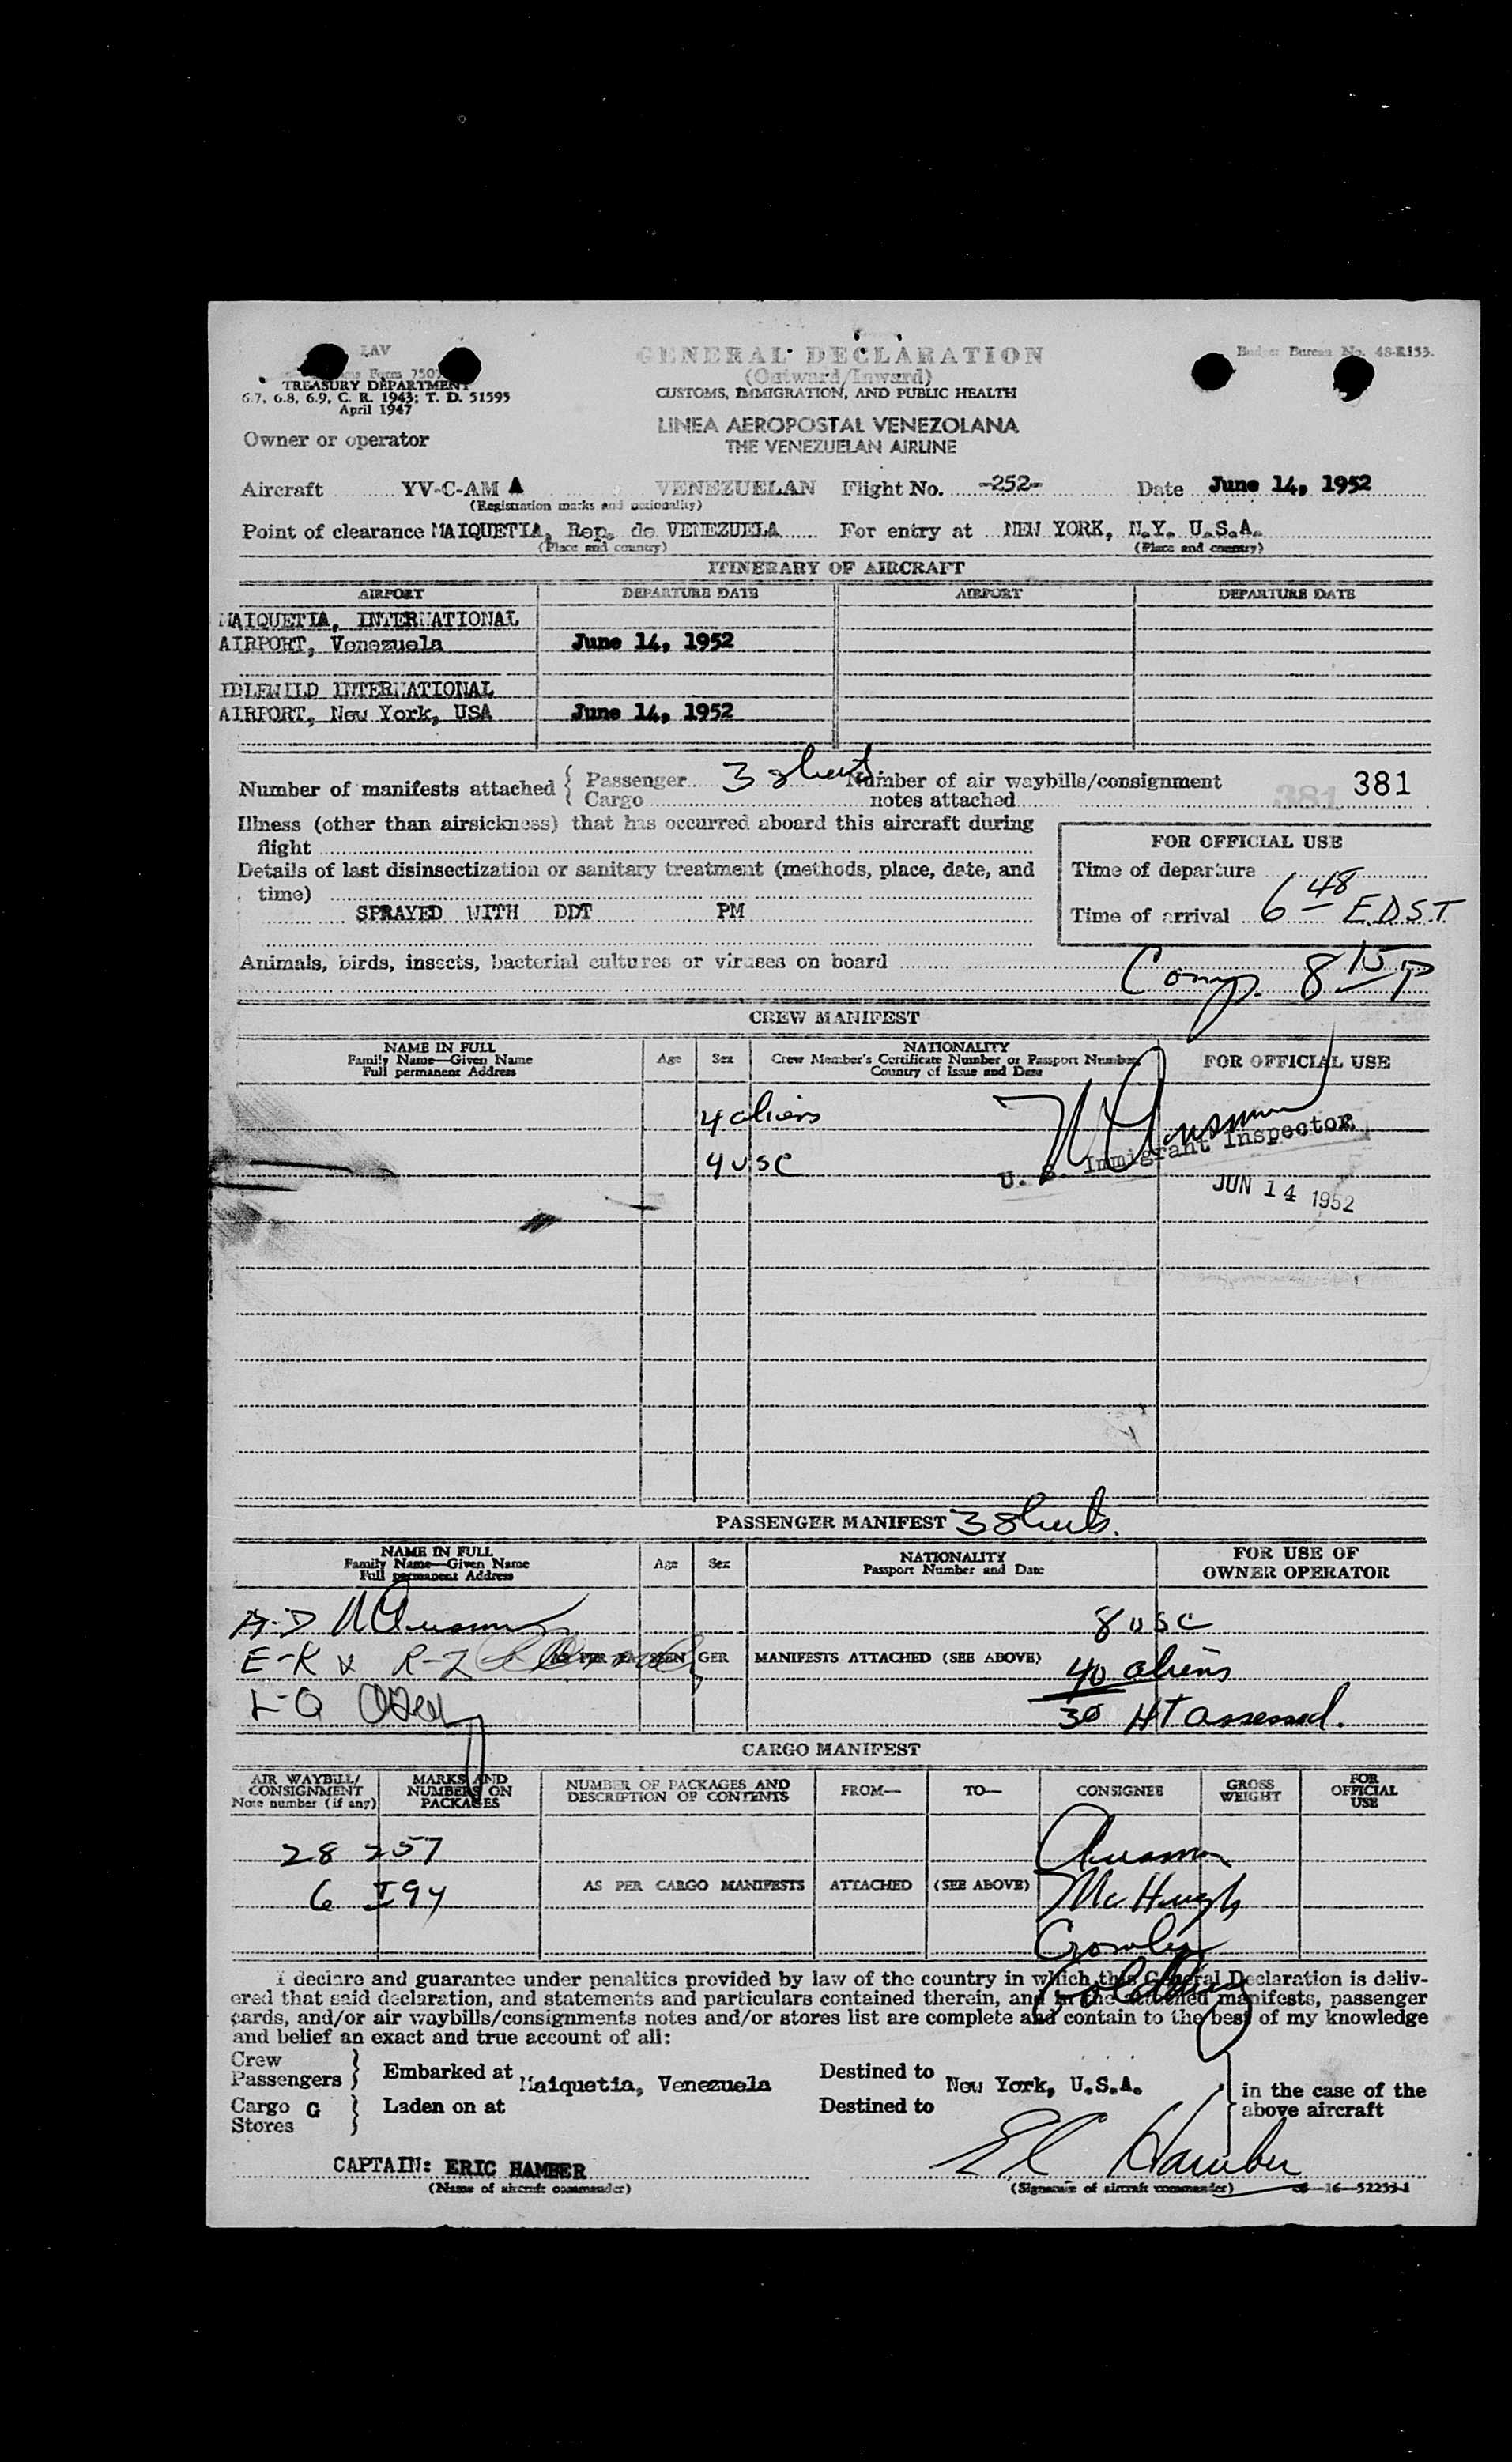 LAV
GENERAL DECLARATION
Budget Bureau No. 48-R153.
Form 7507
(Outward/Inward)
TREASURY DEPARTMENT
CUSTOMS, IMMIGRATION, AND PUBLIC HEALTH
6.7, 6.8, 6.9, C. R. 1943; T. D. 51595
April 1947
LINEA AEROPOSTAL VENEZOLANA
Owner or operator
THE VENEZUELAN AIRLINE
Aircraft YV-C-AM A VENEZUELAN Flight No. -252- Date June 14, 1952
(Registration marks and nationality)
Point of clearance MAIQUETIA, Rep. de VENEZUELA For entry at NEW YORK, N.Y. U.S.A.
(Place and country) (Place and country)
ITINERARY OF AIRCRAFT
AIRPORT DEPARTURE DATE AIRPORT DEPARTURE DATE
MAIQUETIA, INTERNATIONAL
AIRPORT, Venezuela June 14, 1952
IDLEWILD INTERNATIONAL
AIRPORT, New York, USA June 14, 1952
Number of manifests attached { Passenger 3 sheets Number of air waybills/consignment 381 381
Cargo notes attached
Illness (other than airsickness) that has occurred aboard this aircraft during
flight
FOR OFFICIAL USE
Details of last disinsectization or sanitary treatment (methods, place, date, and
time)
Time of departure
SPRAYED WITH DDT PM
Time of arrival 6 48 E.D.S.T
Animals, birds, insects, bacterial cultures or viruses on board
Comp. 8 15 P
CREW MANIFEST
NAME IN FULL
Family Name—Given Name
Full permanent Address
Age Sex
NATIONALITY
Crew Member's Certificate Number or Passport Number
Country of Issue and Date
FOR OFFICIAL USE
4 aliens
4 USC
U. S. Immigrant Inspector
JUN 14 1952
PASSENGER MANIFEST 3 sheets.
NAME IN FULL
Family Name—Given Name
Full permanent Address
Age Sex
NATIONALITY
Passport Number and Date
FOR USE OF
OWNER OPERATOR
A-D
8 USC
E-K & R-Z AS PER PASSENGER MANIFESTS ATTACHED (SEE ABOVE) 40 aliens
L-Q
30 HT assessed.
CARGO MANIFEST
AIR WAYBILL/
CONSIGNMENT
Note number (if any)
MARKS AND
NUMBERS ON
PACKAGES
NUMBER OF PACKAGES AND
DESCRIPTION OF CONTENTS
FROM— TO— CONSIGNEE
GROSS
WEIGHT
FOR
OFFICIAL
USE
28 257
6 I94 AS PER CARGO MANIFESTS ATTACHED (SEE ABOVE) McHugh
I declare and guarantee under penalties provided by law of the country in which this General Declaration is deliv-
ered that said declaration, and statements and particulars contained therein, and in the attached manifests, passenger
cards, and/or air waybills/consignments notes and/or stores list are complete and contain to the best of my knowledge
and belief an exact and true account of all:
Crew
Passengers } Embarked at Maiquetia, Venezuela Destined to New York, U.S.A.
in the case of the
above aircraft
Cargo G
Stores } Laden on at Destined to
CAPTAIN: ERIC HAMBER E C Hamber
(Name of aircraft commander) (Signature of aircraft commander) 16—52253-1